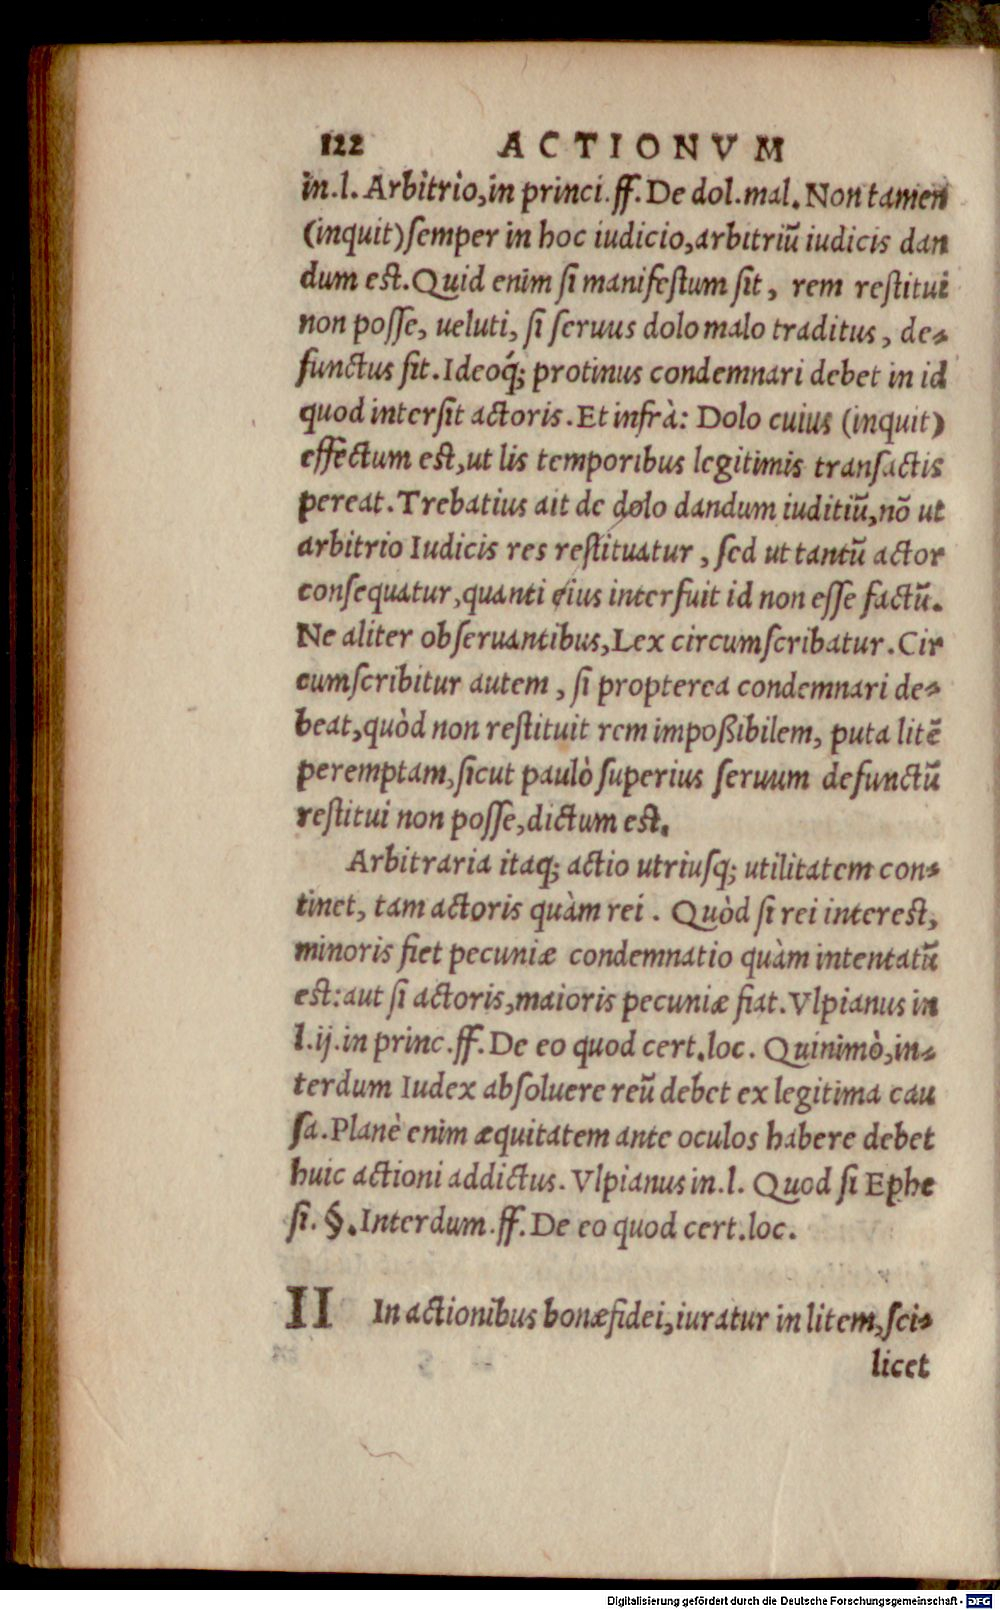 122 ACTIONVM
in.l. Arbitrio,in princi.ff.De dol.mal. Non tamen
(inquit)ſemper in hoc iudicio,arbitriũ iudicis dan
dum eſt.Quid enim ſi manifeſtum ſit, rem reſtitui
non poſſe, ueluti, ſi ſeruus dolo malo traditus, de-
functus ſit. Ideoq́; protinus condemnari debet in id
quod interſit actoris. Et infrà: Dolo cuius (inquit)
effectum eſt,ut lis temporibus legitimis tranſactis
pereat. Trebatius ait de dolo dandum iuditiũ,nõ ut
arbitrio Iudicis res reſtituatur, ſed ut tantũ actor
conſequatur,quanti eius interfuit id non eſſe factũ.
Ne aliter obſeruantibus,Lex circumſcribatur. Cir
cumſcribitur autem, ſi propterea condemnari de-
beat,quòd non reſtituit rem impoßibilem, puta litẽ
peremptam,ſicut paulò ſuperius ſeruum defunctũ
reſtitui non poſſe,dictum eſt.
Arbitraria itaq; actio utriuſq; utilitatem con-
tinet, tam actoris quàm rei. Quòd ſi rei intereſt,
minoris fiet pecuniæ condemnatio quàm intentatũ
eſt:aut ſi actoris,maioris pecuniæ fiat. Vlpianus in
l.ij.in princ.ff. De eo quod cert.loc. Quinimò,in-
terdum Iudex abſoluere reũ debet ex legitima cau
ſa. Planè enim æquitatem ante oculos habere debet
huic actioni addictus. Vlpianus in.l. Quod ſi Ephe
ſi. §. Interdum.ff. De eo quod cert.loc.
II In actionibus bonæfidei,iuratur in litem,ſci-
licet
Digitalisierung gefördert durch die Deutsche Forschungsgemeinschaft - DFG